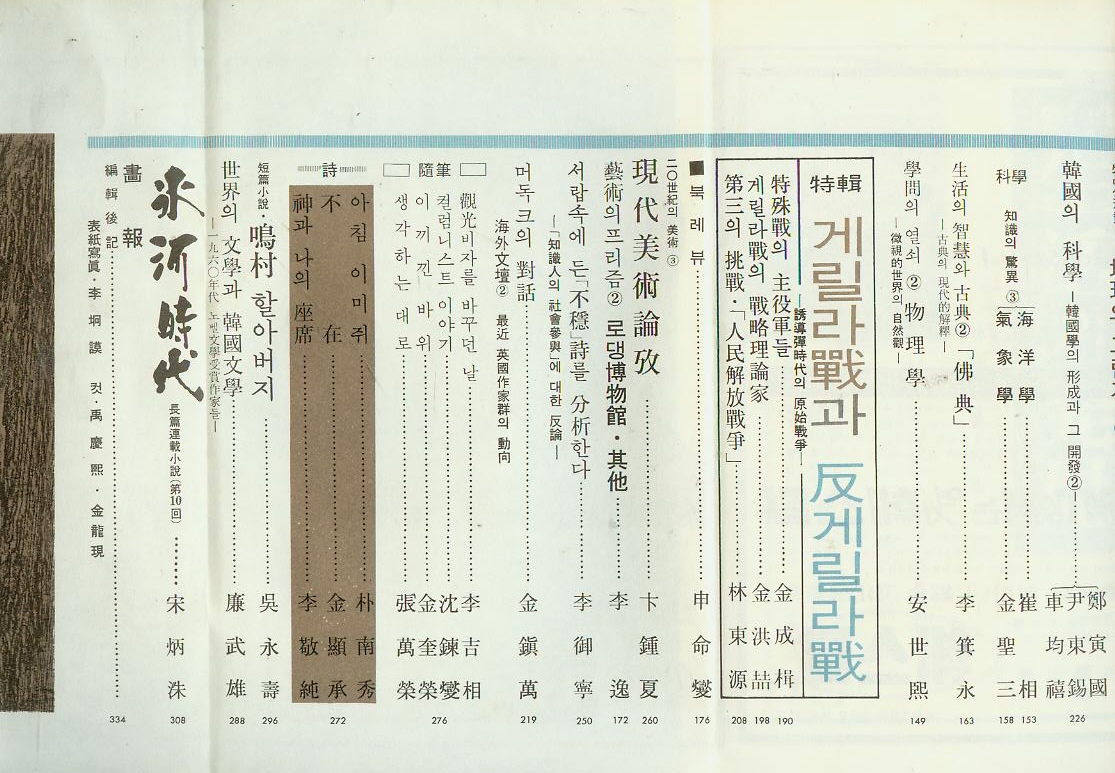 韓國의 科學 —韓國學의 形成과 그 開發②— 鄭寅國 尹東錫 車均禧 226
科學
知識의 驚異 ③
海洋學 崔相 153
氣象學 金聖三 158
生活의 智慧와 古典② 「佛典」 李箕永 163
—古典의 現代的解釋—
學問의 열쇠 ② 物理學 安世熙 149
—微視的世界의 自然觀—
特輯 게릴라戰과 反게릴라戰
—誘導彈時代의 原始戰爭—
特殊戰의 主役軍들 金成楫 190
게릴라戰의 戰略理論家 金洪喆 198
第三의 挑戰·「人民解放戰爭」 林東源 208
■ 북 레 뷰 申命燮 176
二○世紀의 美術 ③
現代美術論攷 卞鍾夏 260
藝術의프리즘② 로댕博物館·其他 李逸 172
서랍속에 든「不穩」詩를 分析한다 李御寧 250
—「知識人의 社會參與」에 대한 反論—
머독크의 對話 金鎭萬 219
海外文壇② 最近 英國作家群의 動向
隨筆
觀光비자를 바꾸던 날 李吉相
컬럼니스트 이야기 沈鍊燮
이끼낀 바위 金奎榮
생각하는 대로 張萬榮
276
詩
아침 이미쥐 朴南秀
不在 金顯承
神과 나의 座席 李敬純
272
短篇小說·鳴村 할아버지 吳永壽 296
世界의 文學과 韓國文學 廉武雄 288
—一九六○年代 노벨文學受賞作家들—
氷河時代 長篇連載小說(第10回) 宋炳洙 308
畵報
編輯後記 334
表紙寫眞·李坰謨 컷·禹慶熙·金龍現